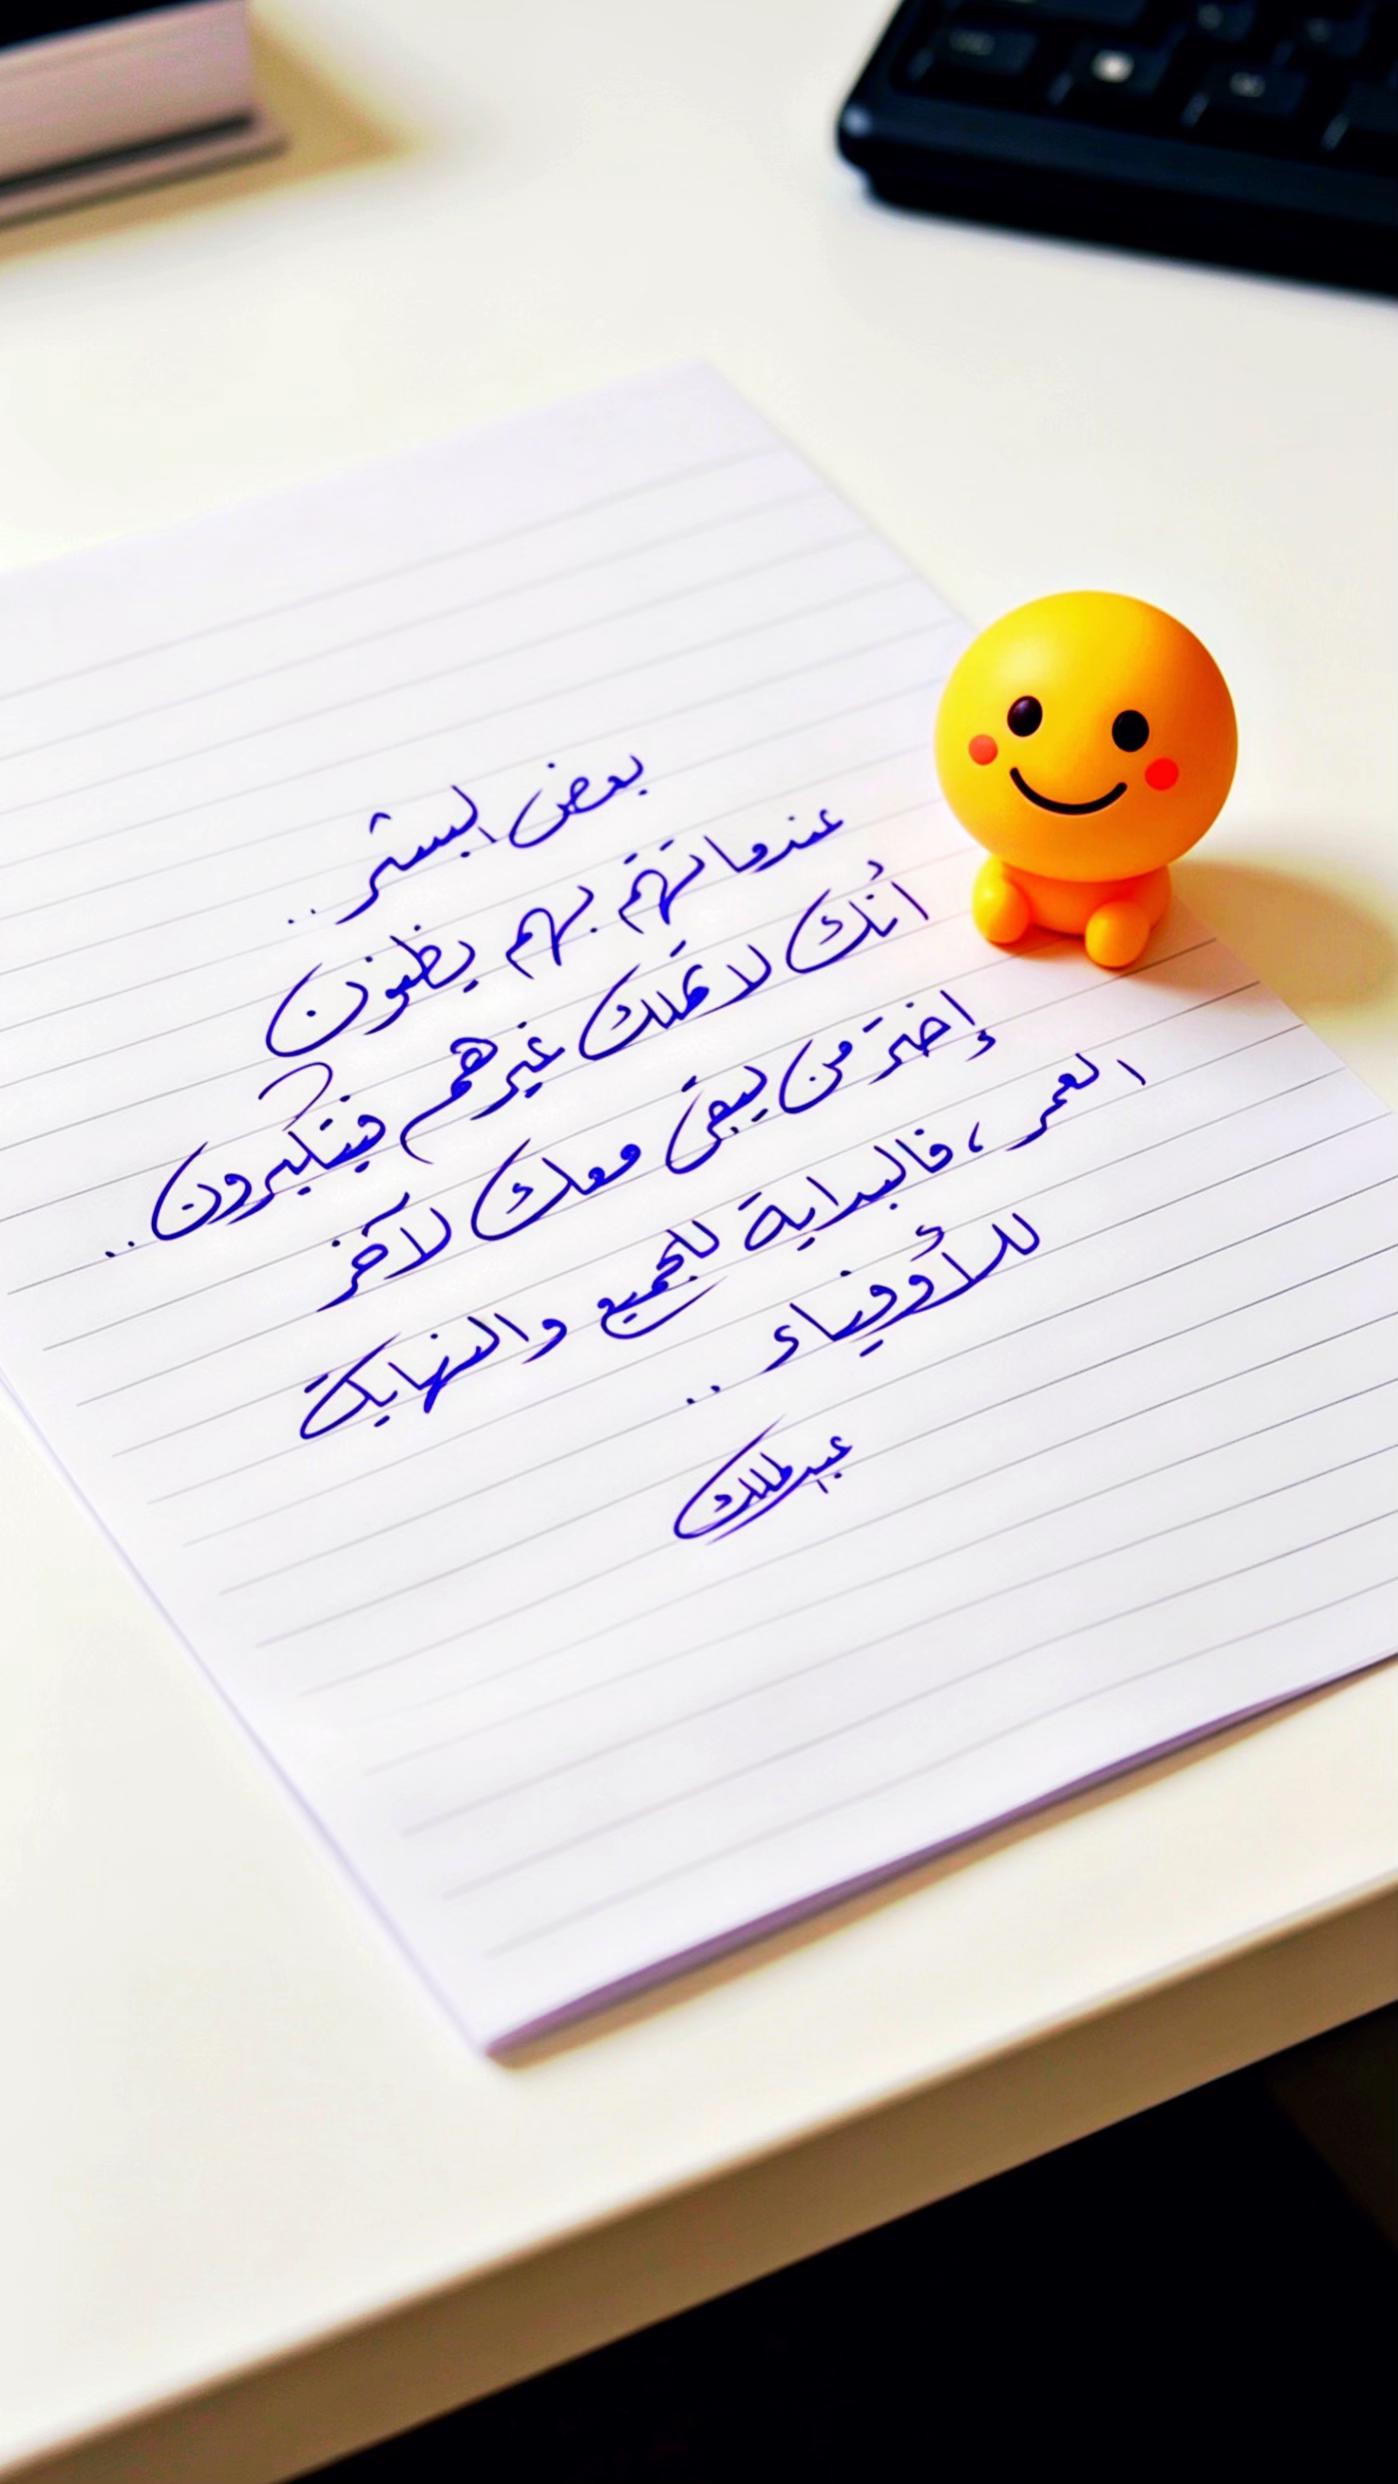 بعض البشر ..
عندما تهتم بهم يظنون
أنك لا تملك غيرهم فيتكبرون ..
إختر من يبقى معك لآخر
العمر ، فالبداية للجميع والنهاية
للأوفياء ..
عبدالملك